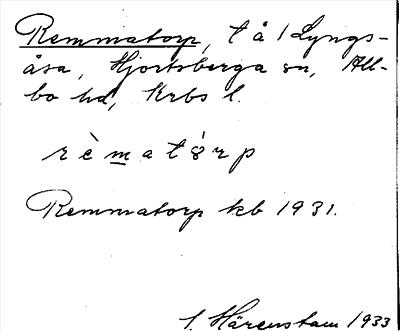 Remmatorp, t å 1 Lyngs-
åsa, Hjortsberga sn, All-
bo hd, Krbs l.
rèmatȯrp
Remmatorp kb 1931.
I. Härenstam 1933